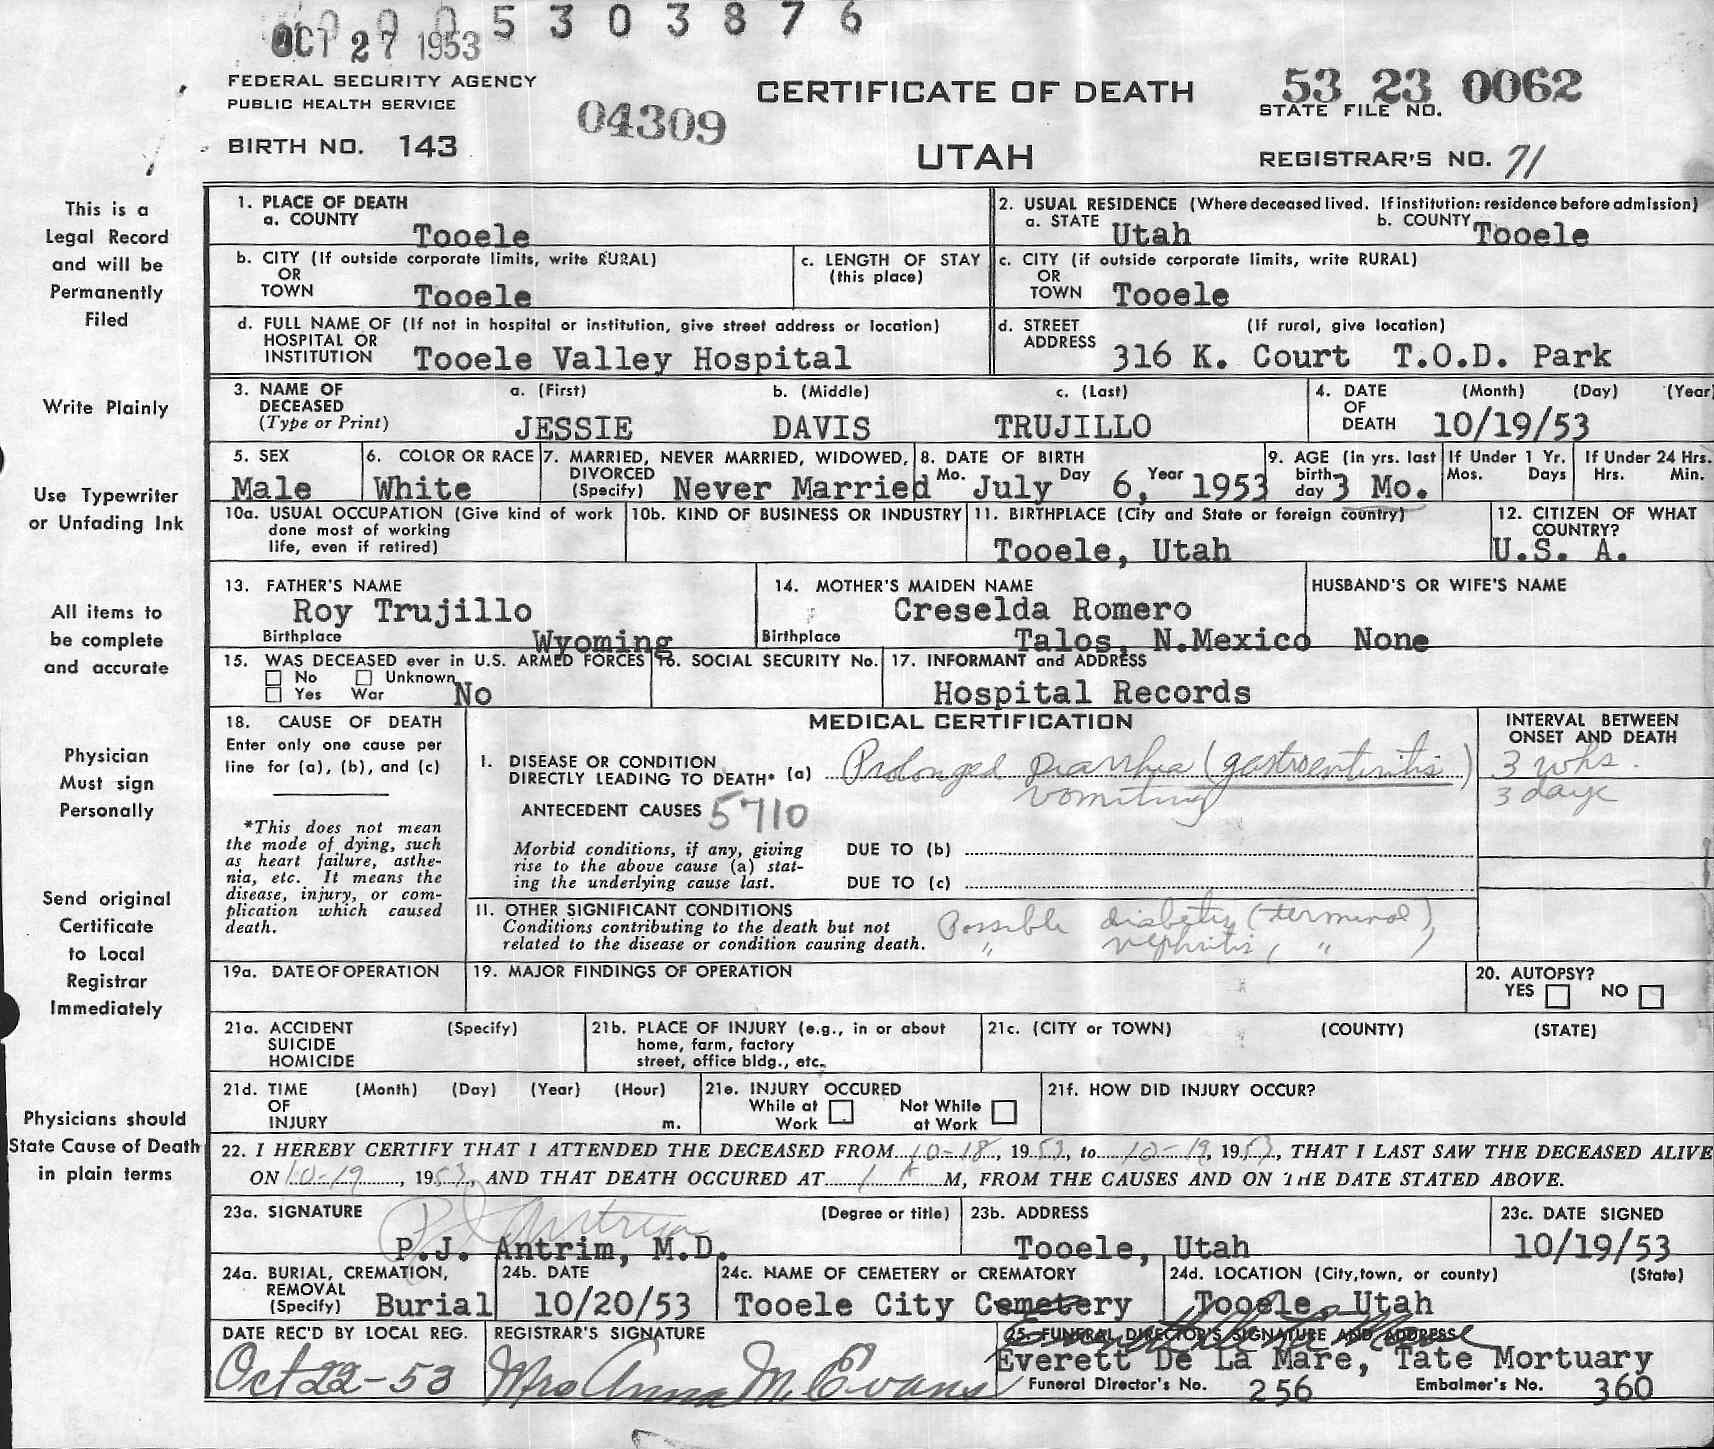 0 0 0 5 3 0 3 8 7 6
OCT 27 1953
FEDERAL SECURITY AGENCY
PUBLIC HEALTH SERVICE
BIRTH NO. 143
04309
CERTIFICATE OF DEATH
UTAH
53 23 0062
STATE FILE NO.
REGISTRAR'S NO. 71
This is a
Legal Record
and will be
Permanently
Filed
Write Plainly
Use Typewriter
or Unfading Ink
All items to
be complete
and accurate
Physician
Must sign
Personally
Send original
Certificate
to Local
Registrar
Immediately
Physicians should
State Cause of Death
in plain terms
1. PLACE OF DEATH
a. COUNTY Tooele
2. USUAL RESIDENCE (Where deceased lived. If institution: residence before admission)
a. STATE Utah b. COUNTY Tooele
b. CITY (If outside corporate limits, write RURAL)
OR
TOWN Tooele
c. LENGTH OF STAY
(this place)
c. CITY (if outside corporate limits, write RURAL)
OR
TOWN Tooele
d. FULL NAME OF (If not in hospital or institution, give street address or location)
HOSPITAL OR
INSTITUTION Tooele Valley Hospital
d. STREET (If rural, give location)
ADDRESS 316 K. Court T.O.D. Park
3. NAME OF a. (First) b. (Middle) c. (Last)
DECEASED
(Type or Print) JESSIE DAVIS TRUJILLO
4. DATE (Month) (Day) (Year)
OF
DEATH 10/19/53
5. SEX
Male
6. COLOR OR RACE
White
7. MARRIED, NEVER MARRIED, WIDOWED,
DIVORCED
(Specify) Never Married
8. DATE OF BIRTH
Mo. July Day 6, Year 1953
9. AGE (in yrs. last
birth
day 3 Mo.
If Under 1 Yr.
Mos. Days
If Under 24 Hrs.
Hrs. Min.
10a. USUAL OCCUPATION (Give kind of work
done most of working
life, even if retired)
10b. KIND OF BUSINESS OR INDUSTRY
11. BIRTHPLACE (City and State or foreign country)
Tooele, Utah
12. CITIZEN OF WHAT
COUNTRY?
U.S. A.
13. FATHER'S NAME
Roy Trujillo
Birthplace Wyoming
14. MOTHER'S MAIDEN NAME
Creselda Romero
Birthplace Talos, N.Mexico
HUSBAND'S OR WIFE'S NAME
None
15. WAS DECEASED ever in U.S. ARMED FORCES
No Unknown
Yes War No
16. SOCIAL SECURITY No.
17. INFORMANT and ADDRESS
Hospital Records
18. CAUSE OF DEATH
Enter only one cause per
line for (a), (b), and (c)
*This does not mean
the mode of dying, such
as heart failure, asthe-
nia, etc. It means the
disease, injury, or com-
plication which caused
death.
MEDICAL CERTIFICATION
INTERVAL BETWEEN
ONSET AND DEATH
I. DISEASE OR CONDITION
DIRECTLY LEADING TO DEATH* (a) Prolonged Diarrhea (gastroenteritis) 3 wks.
vomiting 3 days
ANTECEDENT CAUSES 5710
Morbid conditions, if any, giving
rise to the above cause (a) stat-
ing the underlying cause last.
DUE TO (b)
DUE TO (c)
II. OTHER SIGNIFICANT CONDITIONS
Conditions contributing to the death but not
related to the disease or condition causing death.
Possible diabetes (terminal)
" nephritis, " )
19a. DATE OF OPERATION
19. MAJOR FINDINGS OF OPERATION
20. AUTOPSY?
YES NO
21a. ACCIDENT (Specify)
SUICIDE
HOMICIDE
21b. PLACE OF INJURY (e.g., in or about
home, farm, factory
street, office bldg., etc.
21c. (CITY or TOWN) (COUNTY) (STATE)
21d. TIME (Month) (Day) (Year) (Hour)
OF
INJURY m.
21e. INJURY OCCURED
While at Work
Not While at Work
21f. HOW DID INJURY OCCUR?
22. I HEREBY CERTIFY THAT I ATTENDED THE DECEASED FROM 10-18, 1953, to 10-19, 1953, THAT I LAST SAW THE DECEASED ALIVE
ON 10-19, 1953, AND THAT DEATH OCCURED AT 1 A M, FROM THE CAUSES AND ON THE DATE STATED ABOVE.
23a. SIGNATURE (Degree or title)
P J Antrim
P.J. Antrim, M.D.
23b. ADDRESS
Tooele, Utah
23c. DATE SIGNED
10/19/53
24a. BURIAL, CREMATION,
REMOVAL
(Specify) Burial
24b. DATE
10/20/53
24c. NAME OF CEMETERY or CREMATORY
Tooele City Cemetery
24d. LOCATION (City, town, or county) (State)
Tooele, Utah
DATE REC'D BY LOCAL REG.
Oct 22-53
REGISTRAR'S SIGNATURE
Mrs Anna M. Evans
25. FUNERAL DIRECTOR'S SIGNATURE AND ADDRESS
Everett De La Mare
Everett De La Mare, Tate Mortuary
Funeral Director's No. 256 Embalmer's No. 360